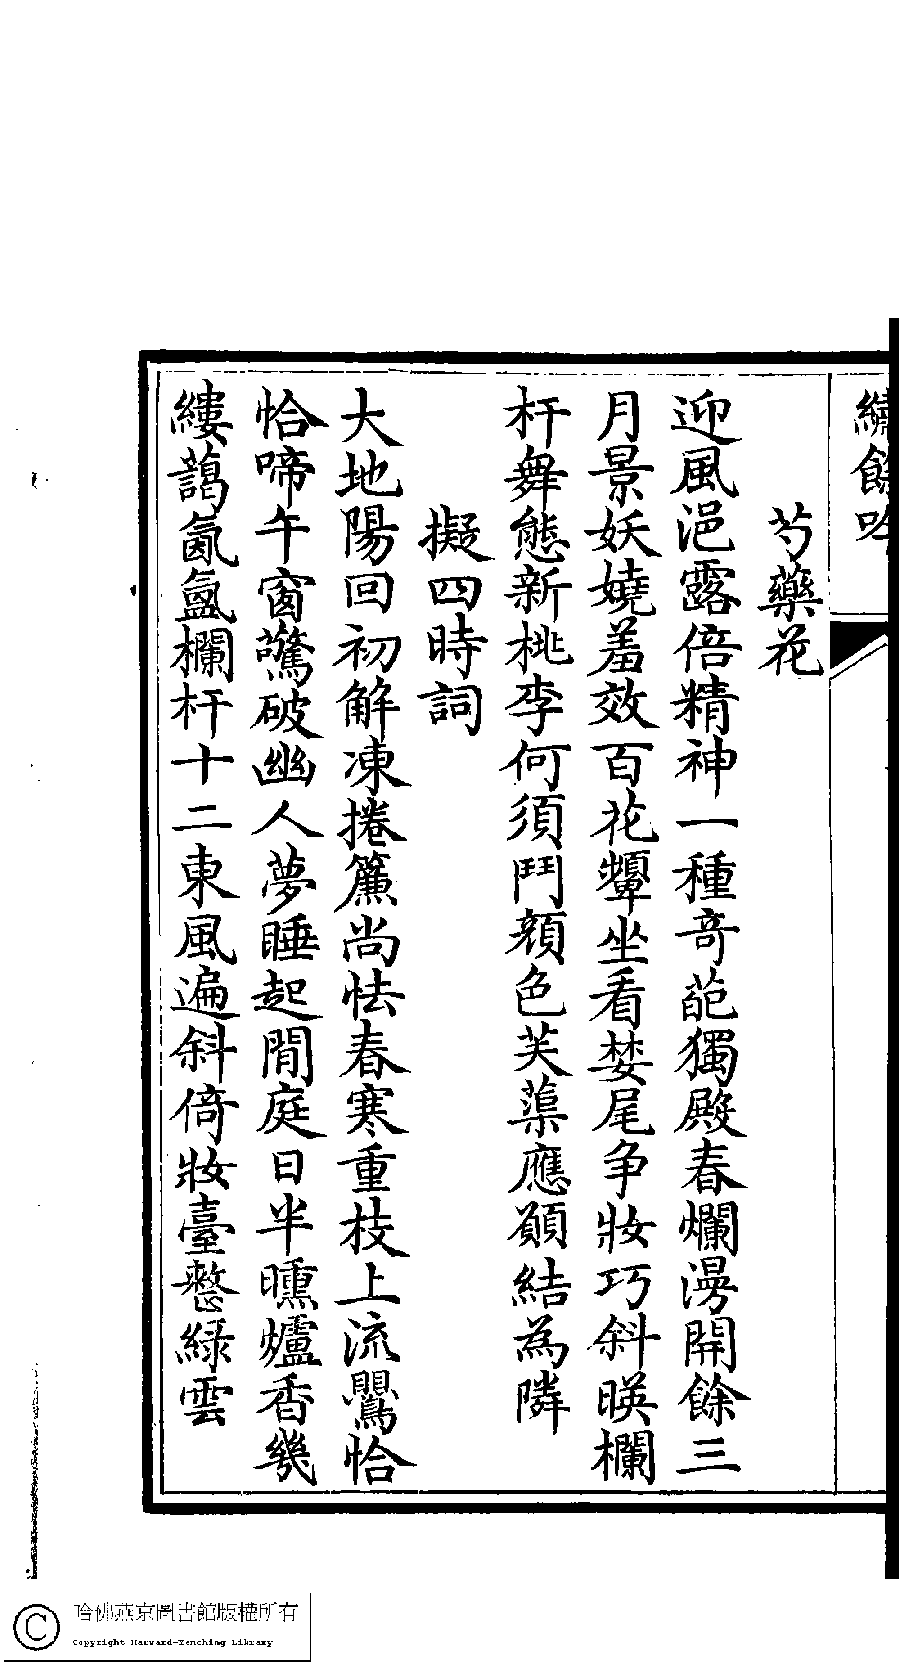 繡餘吟
芍藥花
迎風浥露倍精神一種奇葩獨殿春爛漫開餘三
月景妖嬈羞效百花顰坐看婪尾争妝巧斜暎欄
杆舞態新桃李何須鬥顔色芙蕖應願結為隣
擬四時詞
大地陽回初解凍捲簾尚怯春寒重枝上流鶯恰
恰啼午窗驚破幽人夢睡起閒庭日半曛爐香幾
縷藹氤氳欄杆十二東風遍斜倚妝臺整綠雲
哈佛燕京圖書館版權所有
Copyright Harvard-Yenching Library